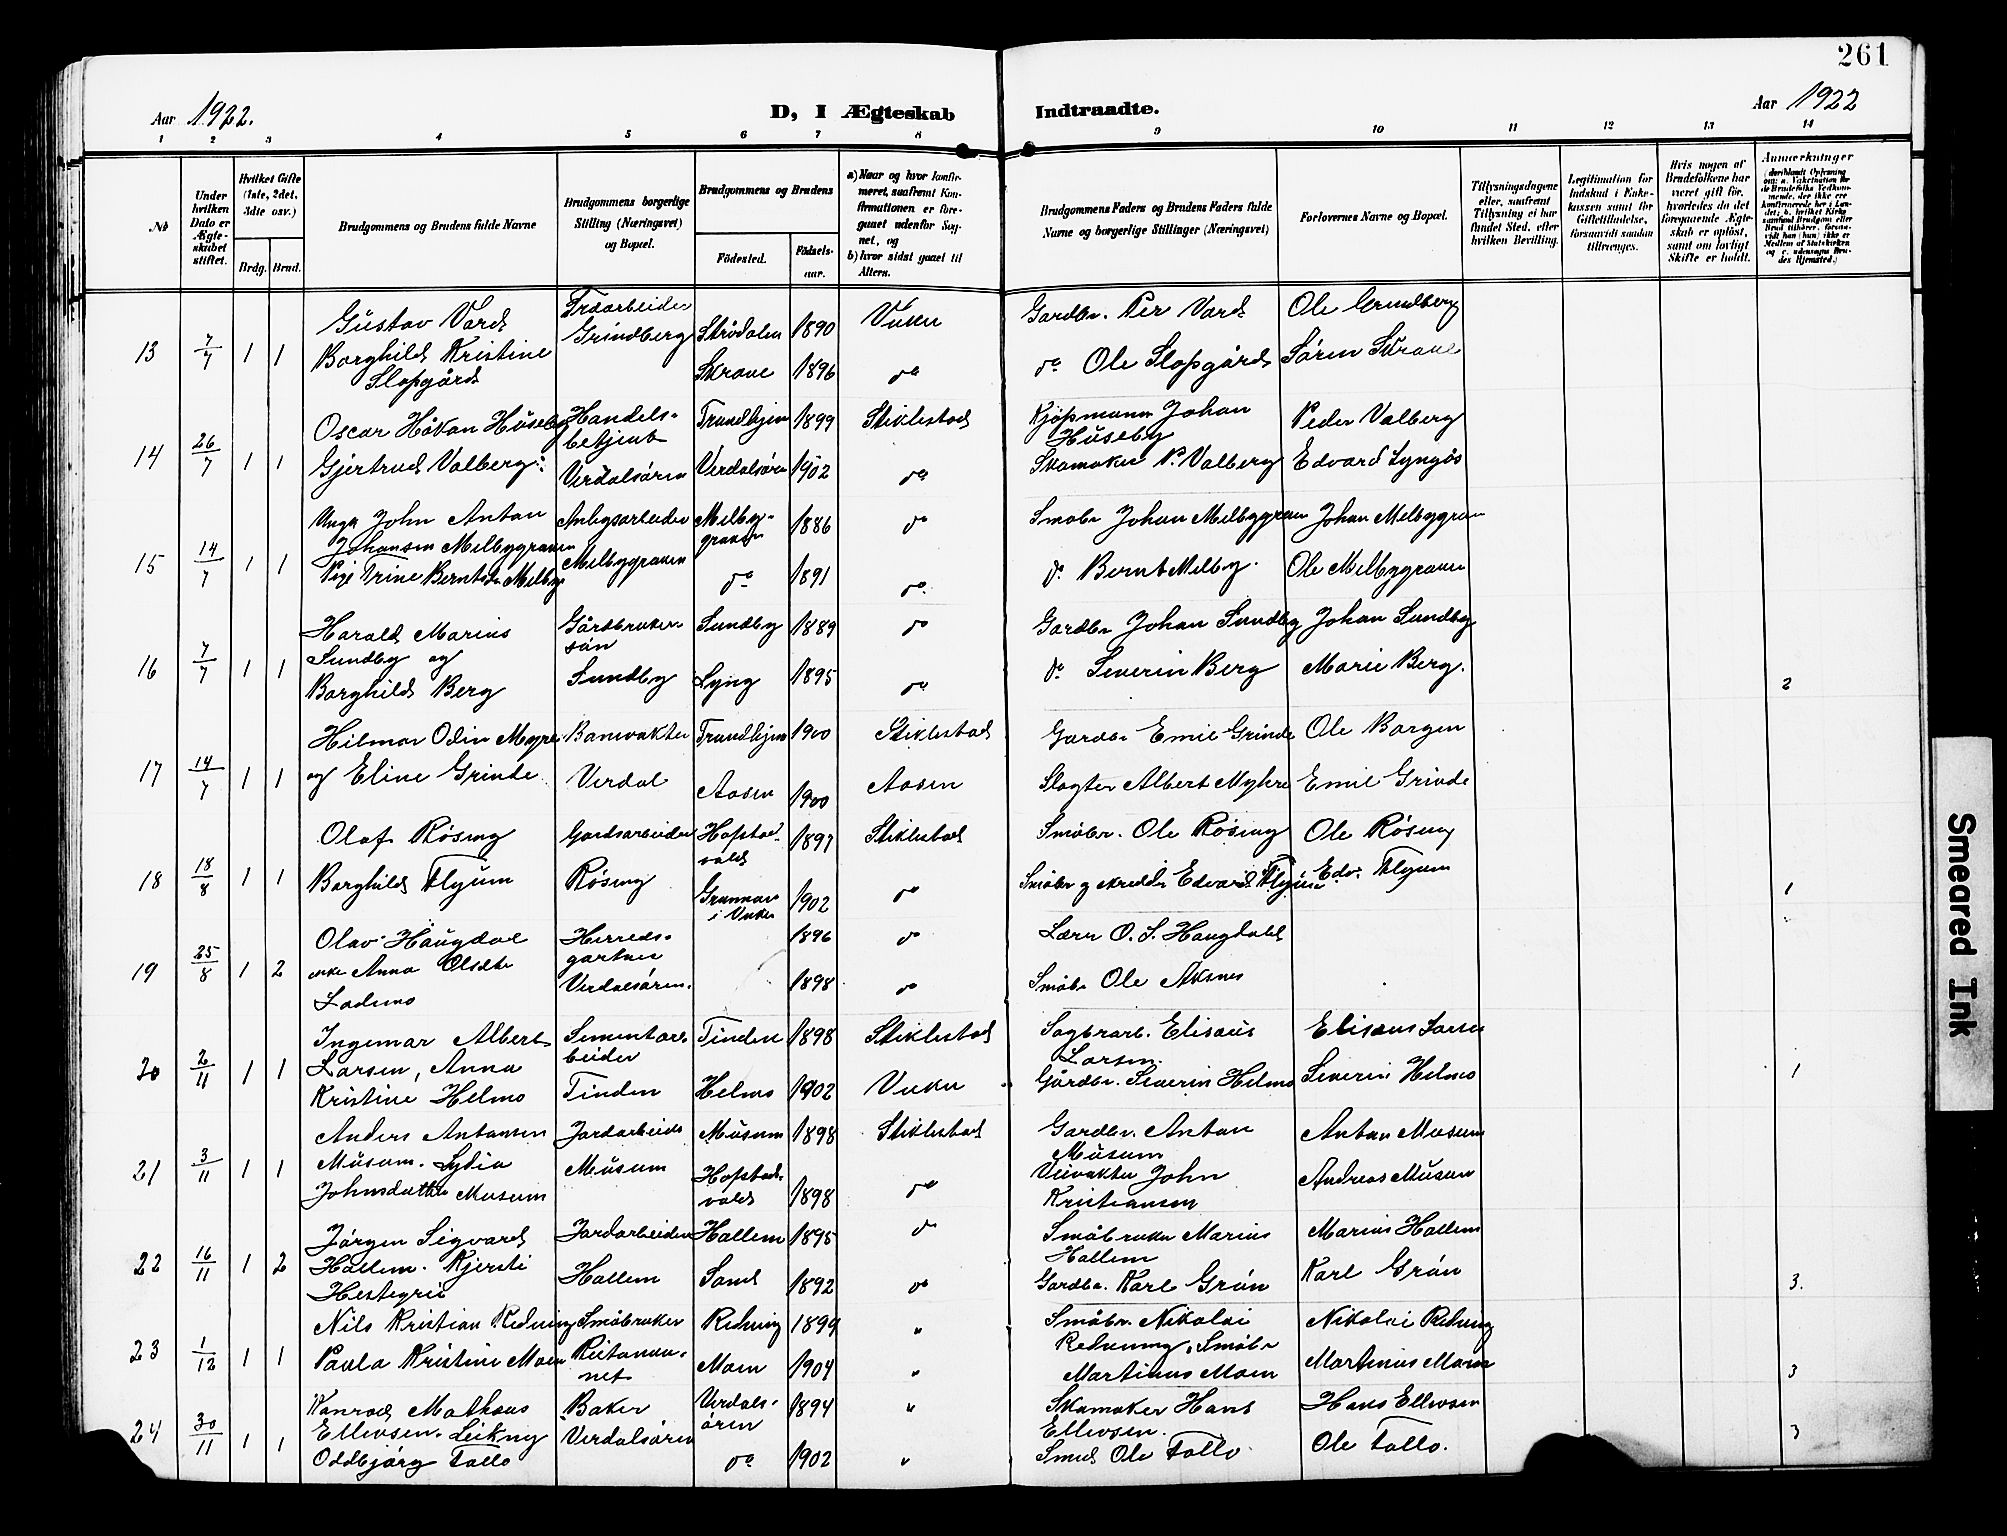 261
Aar 1922.
D, I Ægteskab Indtraadte.
Aar 1922
1 2 3 4 5 6 7 8 9 10 11 12 13 14
No
Under hvilken Dato er Ægteskabet stiftet.
Hvilket Gifte (1ste, 2det, 3dte osv.)
Brdg. Brud.
Brudgommens og Brudens fulde Navne
Brudgommens borgerlige Stilling (Næringsvei) og Bopæl.
Brudgommens og Brudens
Fødested. Fødselsaar.
a) Naar og hvor konfirmeret, saafremt Konfirmationen er foregaaet udenfor Sognet, og
b) hvor sidst gaaet til Alters.
Brudgommens Faders og Brudens Faders fulde Navne og borgerlige Stillinger (Næringsvei)
Forlovernes Navne og Bopæl.
Tillysningsdagene eller, saafremt Tillysning ei har fundet Sted, efter hvilken Bevilling.
Legitimation for Indskud i Enkekassen samt for Giftetilladelse, forsaavidt saadan tiltrænges.
Hvis nogen af Brudefolkene har været gift før, hvorledes da det foregaaende Ægteskab er opløst, samt om lovligt Skifte er holdt.
Anmærkninger
13 7/7 1 1 Gustav Vard Træarbeider Grindberg Stridalen 1890 Vuku Gardbr. Per Vard Ole Grundberg
Borghild Kristine Slapgård Skrave 1896 do do Ole Slapgård Søren Skrave
14 26/7 1 1 Oscar Håkan Huseby Handelsbetjent Trondhjem 1899 Stiklestad Kjøpmann Johan Huseby Peder Valberg
Gjertrud Valberg Verdalsøren Verdalsøren 1902 do Skomaker P. Valberg Edvard Lyngås
15 14/7 1 1 Ungk John Antan Johansen Melbygraven Anlegsarbeider Melbygraven 1886 do Småbr Johan Melbygraven Johan Melbygraven
Pige Trine Berntsdtr Melby Melbygraven do 1891 do do Bernt Melby. Ole Melbygraven
16 7/7 1 1 Harald Marius Sundby og Gårdbrukersøn Sundby 1889 do Gardbr Johan Sundby Johan Sundby
Borghild Berg Sundby Lyng 1895 do do Severin Berg Marie Berg. 2
17 14/7 1 1 Hilmar Odin Myhre Banevakter Trondhjem 1900 Stiklestad Gardbr Emil Grinde Ole Borgen
og Eline Grinde Verdal Aasen 1900 Aasen Slagter Albert Myhre Emil Grinde
18 18/8 1 1 Olaf Røsing Gardsarbeider Hofstadvald 1897 Stiklestad Småbr. Ole Røsing Ole Røsing
Borghild Flyum Røsing Grunnan i Vuku 1902 do Småbr og skredder Edvard Flyum Edv. Flyum 1
19 25/8 1 2 Olav Haugdal Herredsgartner 1896 do Lærer O. S. Haugdahl
enke Anna Olsdtr Ladmo Verdalsøren. 1898 do Småbr Ole Aksnes
20 2/11 1 1 Ingemar Albert Larsen, Anna Sementarbeider Tinden 1898 Stiklestad Sagbrarb. Elisæus Larsen. Elisæus Larsen
Kristine Helmo Tinden Helmo 1902 Vuku Gårdbr. Severin Helmo Severin Helmo 1
21 3/11 1 1 Anders Antonsen Musum. Lydia Jordarbeider Musum 1898 Stiklestad Gardbr. Antan Musum Antan Musum
Johnsdatter Musum Musum Hofstadvald 1898 do Veivakter John Kristiansen Andreas Musum
22 16/11 1 2 Jørgen Sigvard Hallem. Kjersti Jordarbeider Hallem 1895 do Småbruker Marius Hallem Marius Hallem
Hestegrei Hallem Sand 1892 do Gardbr. Karl Grån Karl Grån 3.
23 1/12 1 1 Nils Kristian Redning Småbruker Redning 1899 " Småbr. Nikolai Redning, Småbr Nikolai Redning
Paula Kristine Moen Moen 1904 " Martinus Moen Martinus Moen 3
24 30/11 1 1 Konrad Mathæus Ellevsen. Leikny Baker Verdalsøren 1894 " Skomaker Hans Ellevsen. Hans Ellevsen
Oddbjørg Tallo Verdalsøren do 1902 " Smed Ole Tallo. Ole Tallo. 3
Smeared Ink